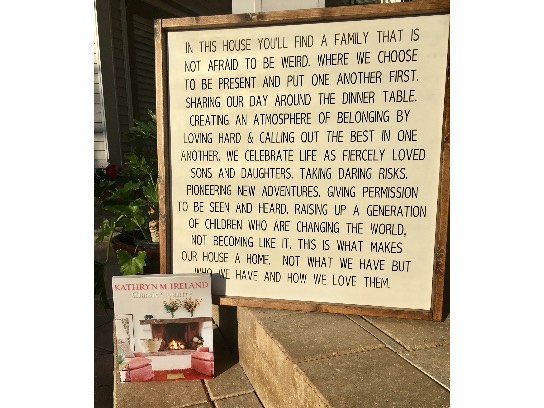 IN THIS HOUSE YOU'LL FIND A FAMILY THAT IS
NOT AFRAID TO BE WEIRD. WHERE WE CHOOSE
TO BE PRESENT AND PUT ONE ANOTHER FIRST.
SHARING OUR DAY AROUND THE DINNER TABLE.
CREATING AN ATMOSPHERE OF BELONGING BY
LOVING HARD & CALLING OUT THE BEST IN ONE
ANOTHER. WE CELEBRATE LIFE AS FIERCELY LOVED
SONS AND DAUGHTERS. TAKING DARING RISKS.
PIONEERING NEW ADVENTURES. GIVING PERMISSION
TO BE SEEN AND HEARD. RAISING UP A GENERATION
OF CHILDREN WHO ARE CHANGING THE WORLD,
NOT BECOMING LIKE IT. THIS IS WHAT MAKES
OUR HOUSE A HOME. NOT WHAT WE HAVE BUT
WHO WE HAVE AND HOW WE LOVE THEM.
KATHRYN M IRELAND